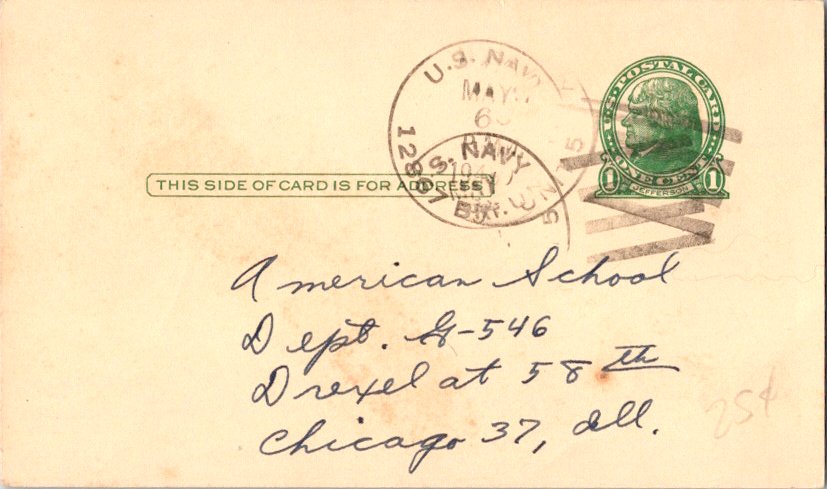 U.S. POSTAL CARD
ONE CENT
1 JEFFERSON 1
U.S. NAVY
MAY
12867 BR.
S. NAVY
THIS SIDE OF CARD IS FOR ADDRESS
American School
Dept. G-546
Drexel at 58th
Chicago 37, Ill.
25¢